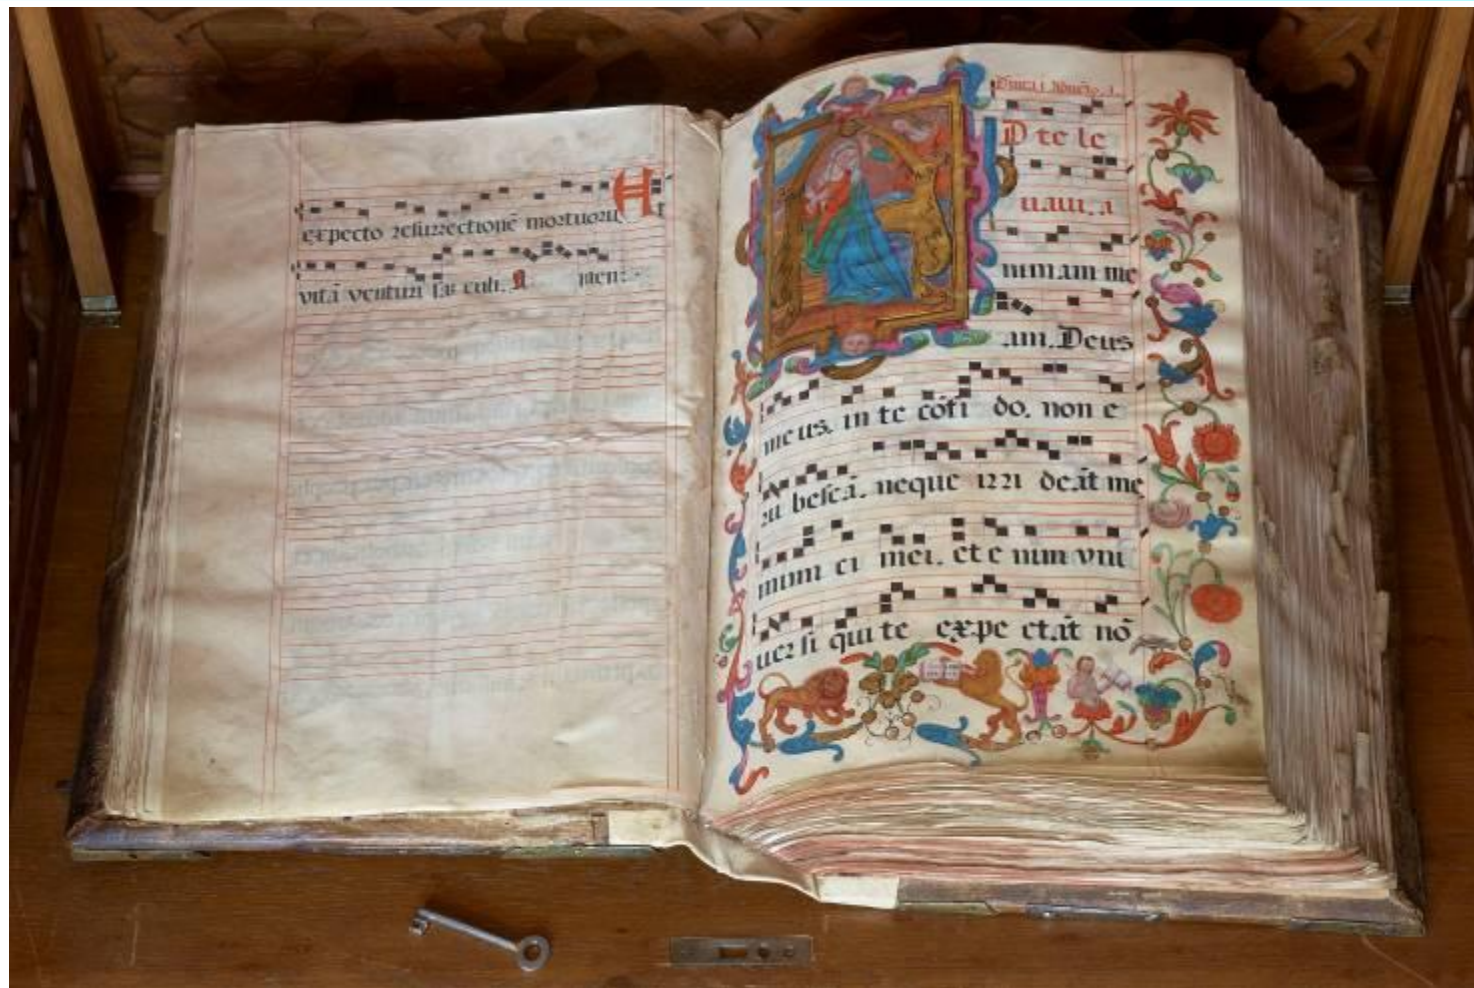 expecto resurrectionē mortuoru Et
vitā venturi sæ culi. A men:
D te le
uaui. a
nimam me
am. Deus
meus, in te cōfi do. non e
ru bescā. neque irri deāt me
inimi ci mei. et e nim vni
uersi qui te expe ctāt nō